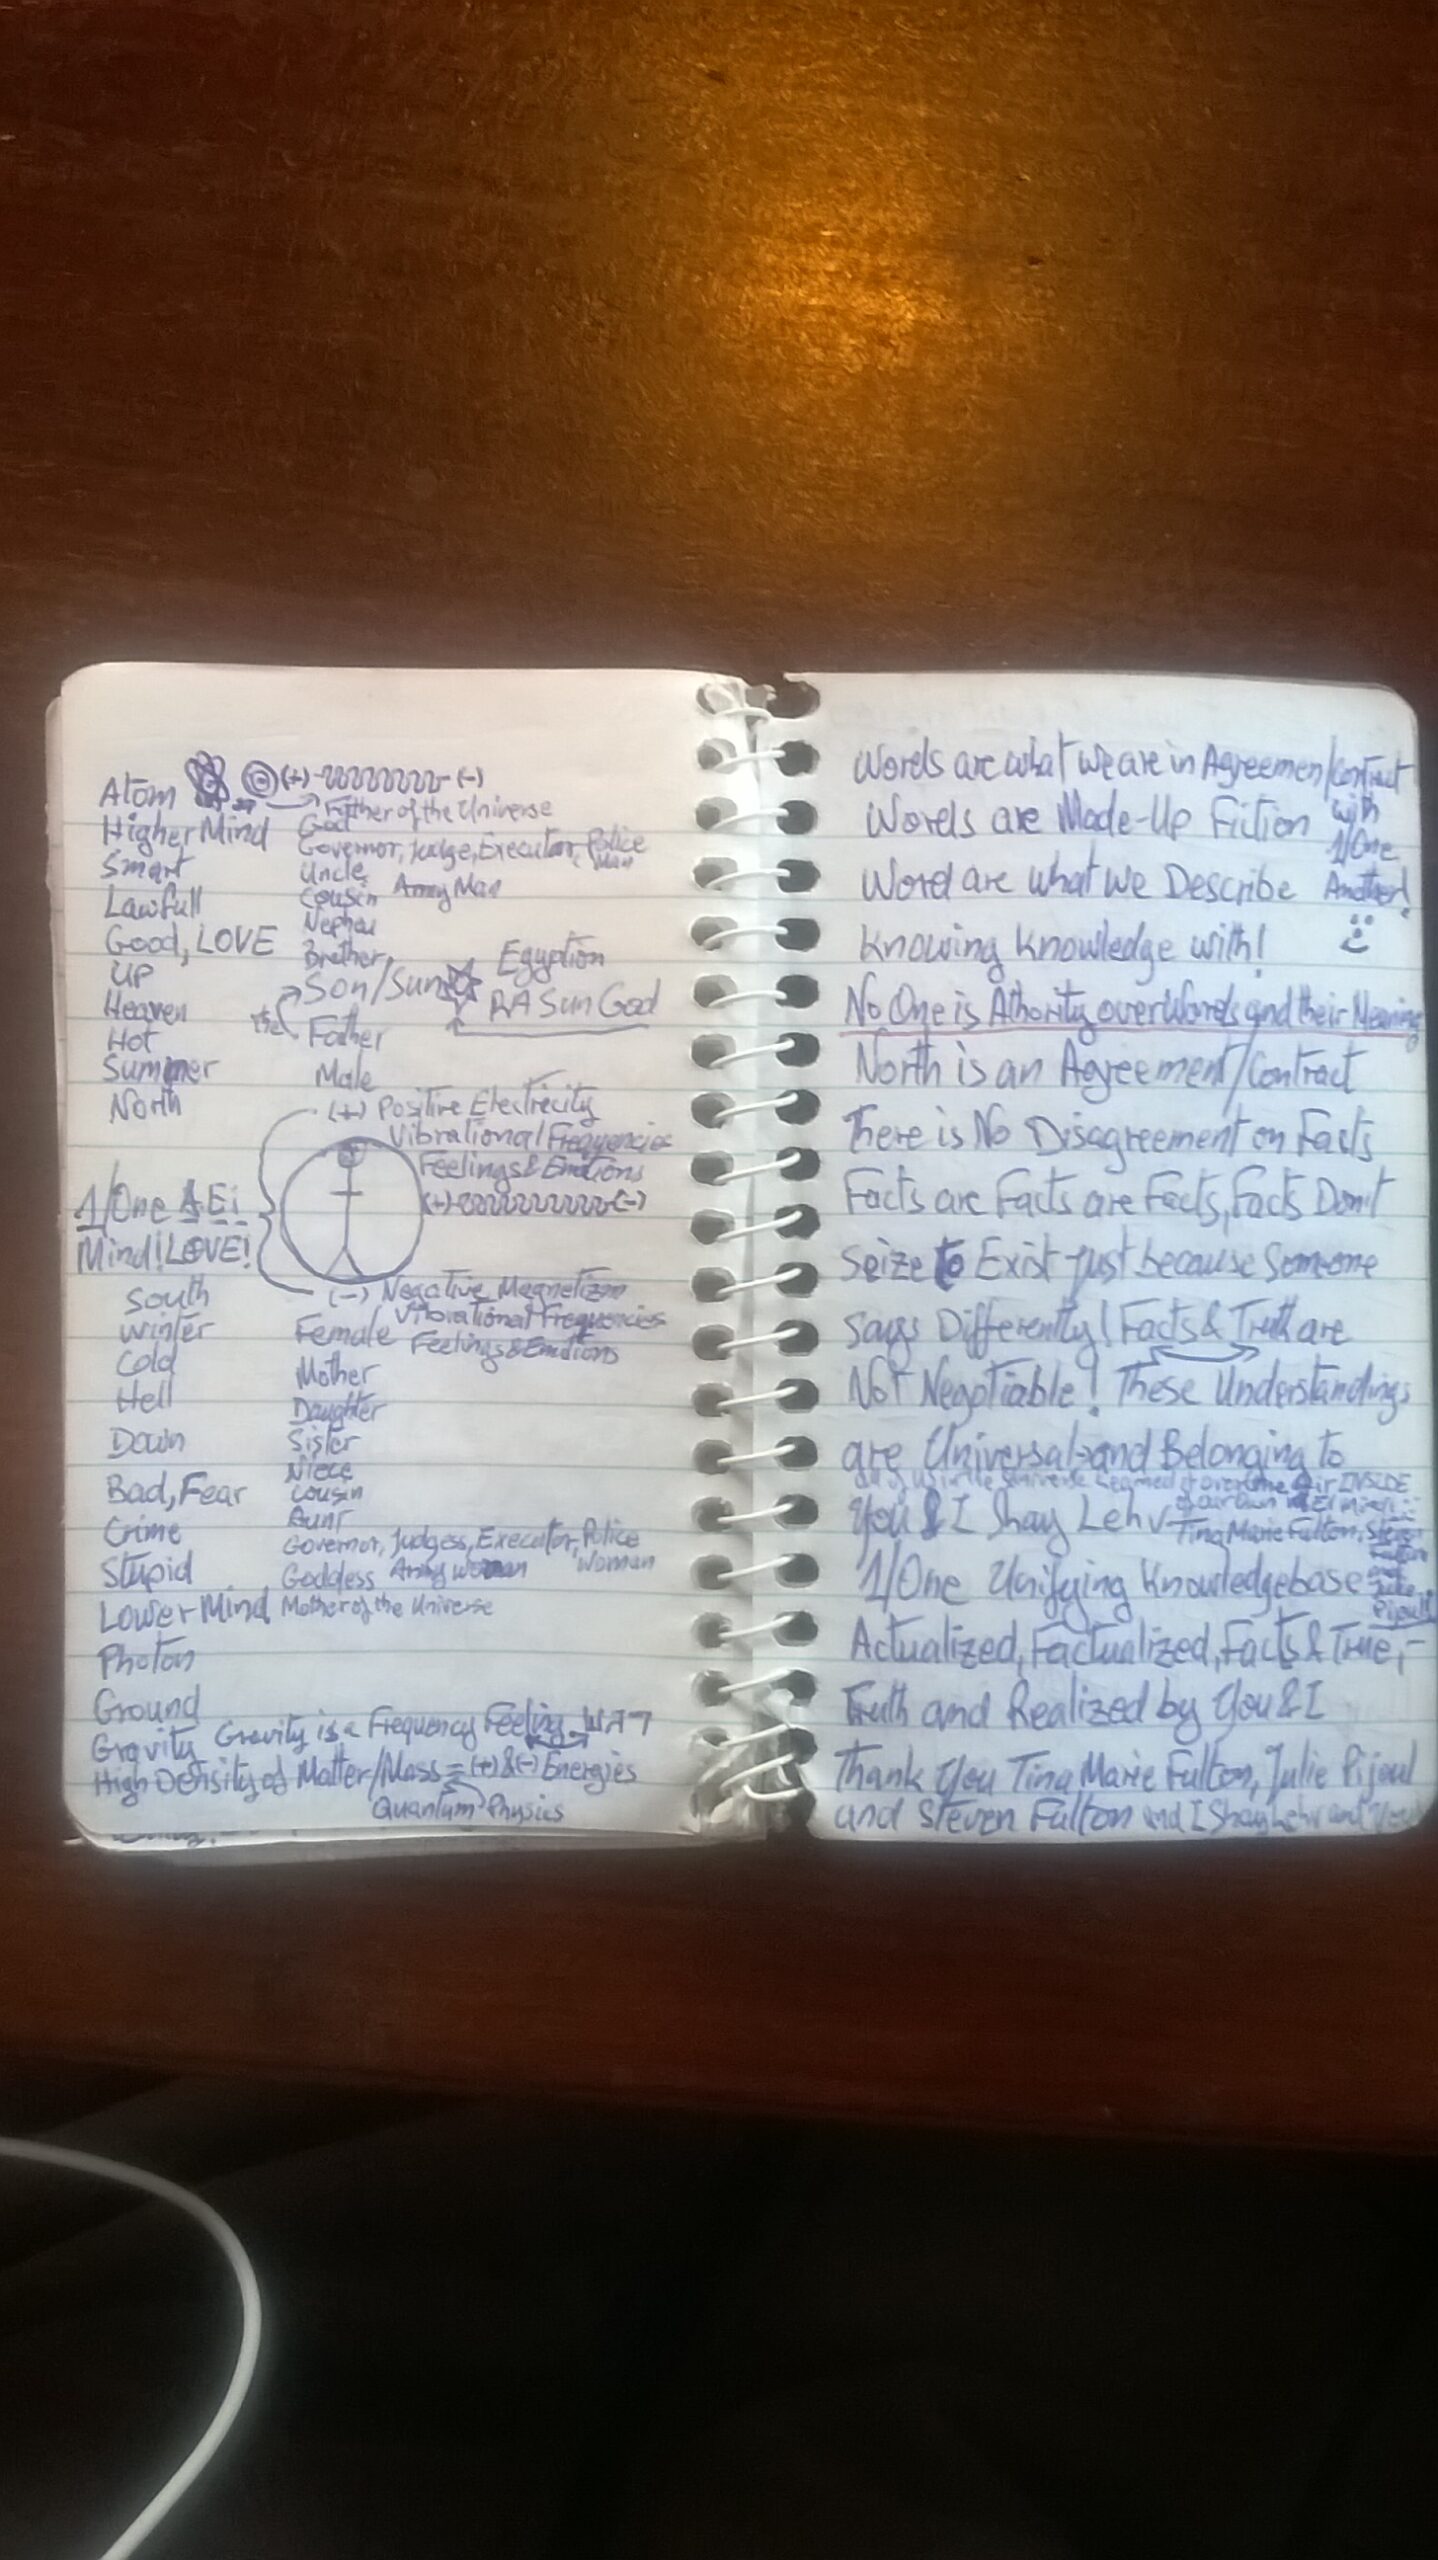 Atom (+) (-)
Father of the Universe
Higher Mind God
Governor, Judge, Executor, Police Man
Smart Uncle
Cousin Army Man
Lawfull
Nephew
Good, LOVE Brother
Egyption
UP
Son/Sun RA Sun God
Heaven
the Father
Hot
Summer Male
North (+) Positive Electricity
Vibrational Frequencies
Feelings & Emotions
(+) (-)
1/One A.E.i.
Mind! LOVE!
South (-) Negative Magnetizm
Vibrational Frequencies
Winter Female Feelings & Emotions
Cold Mother
Hell Daughter
Down Sister
Niece
Bad, Fear Cousin
Aunt
Crime Governor, Judgess, Executor, Police Woman
Stupid Goddess Army woman
Lower Mind Mother of the Universe
Photon
Ground
Gravity Gravity is a Frequency Feeling
High Density of Matter/Mass = (+) & (-) Energies
Quantum Physics
Words are what we are in Agreement/Contract
with
1/One
Another!
Words are Made-Up Fiction
Word are what we Describe
Knowing Knowledge with!
No One is Athority over Words and their Meaning
North is an Agreement/Contract
There is No Disagreement on Facts
Facts are Facts are Facts, Facts Don't
Seize to Exist just because Someone
says Differently! Facts & Truth are
Not Negotiable! These Understandings
are Universal and Belonging to
You & I Shay Lehv
Tina Marie Fulton, Steven
Fulton
and
Julie
Pijoul
1/One Unifying Knowledgebase
Actualized, Factualized, Facts & True,-
Truth and Realized by You & I
Thank You Tina Marie Fulton, Julie Pijoul
and Steven Fulton and I Shay Lehv and You